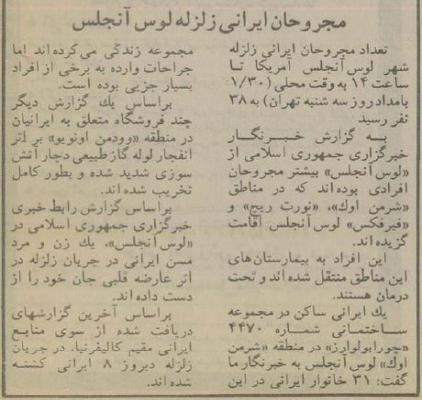 مجروحان ایرانی زلزله لوس آنجلس
تعداد مجروحان ایرانی زلزله
شهر لوس آنجلس آمریکا تا
ساعت ۱۴ به وقت محلی (۱/۳۰
بامداد روز سه شنبه تهران) به ۳۸
نفر رسید
به گزارش خبرنگار
خبرگزاری جمهوری اسلامی از
«لوس آنجلس» بیشتر مجروحان
افرادی بوده اند که در مناطق
«شرمن اوك»، «نورت ریج» و
«فیرفکس» لوس آنجلس اقامت
گزیده اند.
این افراد به بیمارستان های
این مناطق منتقل شده اند و تحت
درمان هستند.
یك ایرانی ساکن در مجموعه
ساختمانی شماره ۴۴۷۰
«چورابولوارز» در منطقه «شرمن
اوك» لوس آنجلس به خبرنگار ما
گفت: ۳۱ خانوار ایرانی در این
مجموعه زندگی می کرده اند اما
جراحات وارده به برخی از افراد
بسیار جزیی بوده است.
براساس یك گزارش دیگر
چند فروشگاه متعلق به ایرانیان
در منطقه «وودمن اونویو» بر اثر
انفجار لوله گاز طبیعی دچار آتش
سوزی شدید شده و بطور کامل
تخریب شده اند.
براساس گزارش رابط خبری
خبرگزاری جمهوری اسلامی در
«لوس آنجلس»، یك زن و مرد
مسن ایرانی در جریان زلزله در
اثر عارضه قلبی جان خود را از
دست داده اند.
براساس آخرین گزارشهای
دریافت شده از سوی منابع
ایرانی مقیم کالیفرنیا، در جریان
زلزله دیروز ۸ ایرانی کشته
شده اند.